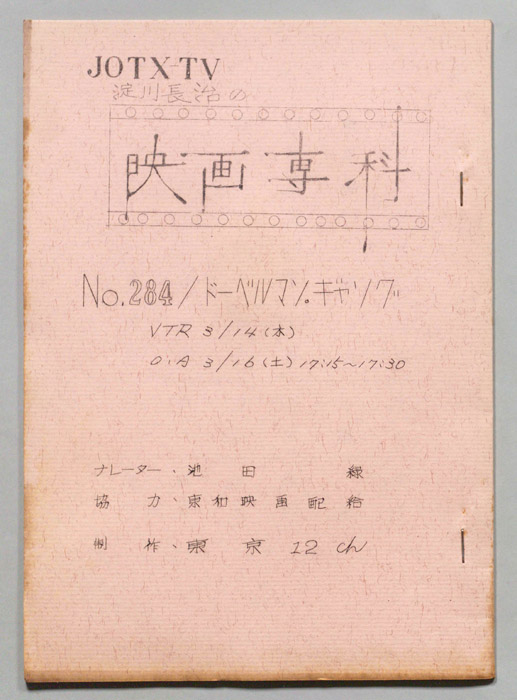 JOTX-TV
淀川長治の
映画専科
No.284/ドーベルマン。ギャング
VTR 3/14(木)
O.A 3/16(土)17:15〜17:30
ナレーター、池田 緑
協力、東和映画配給
制作、東京12ch